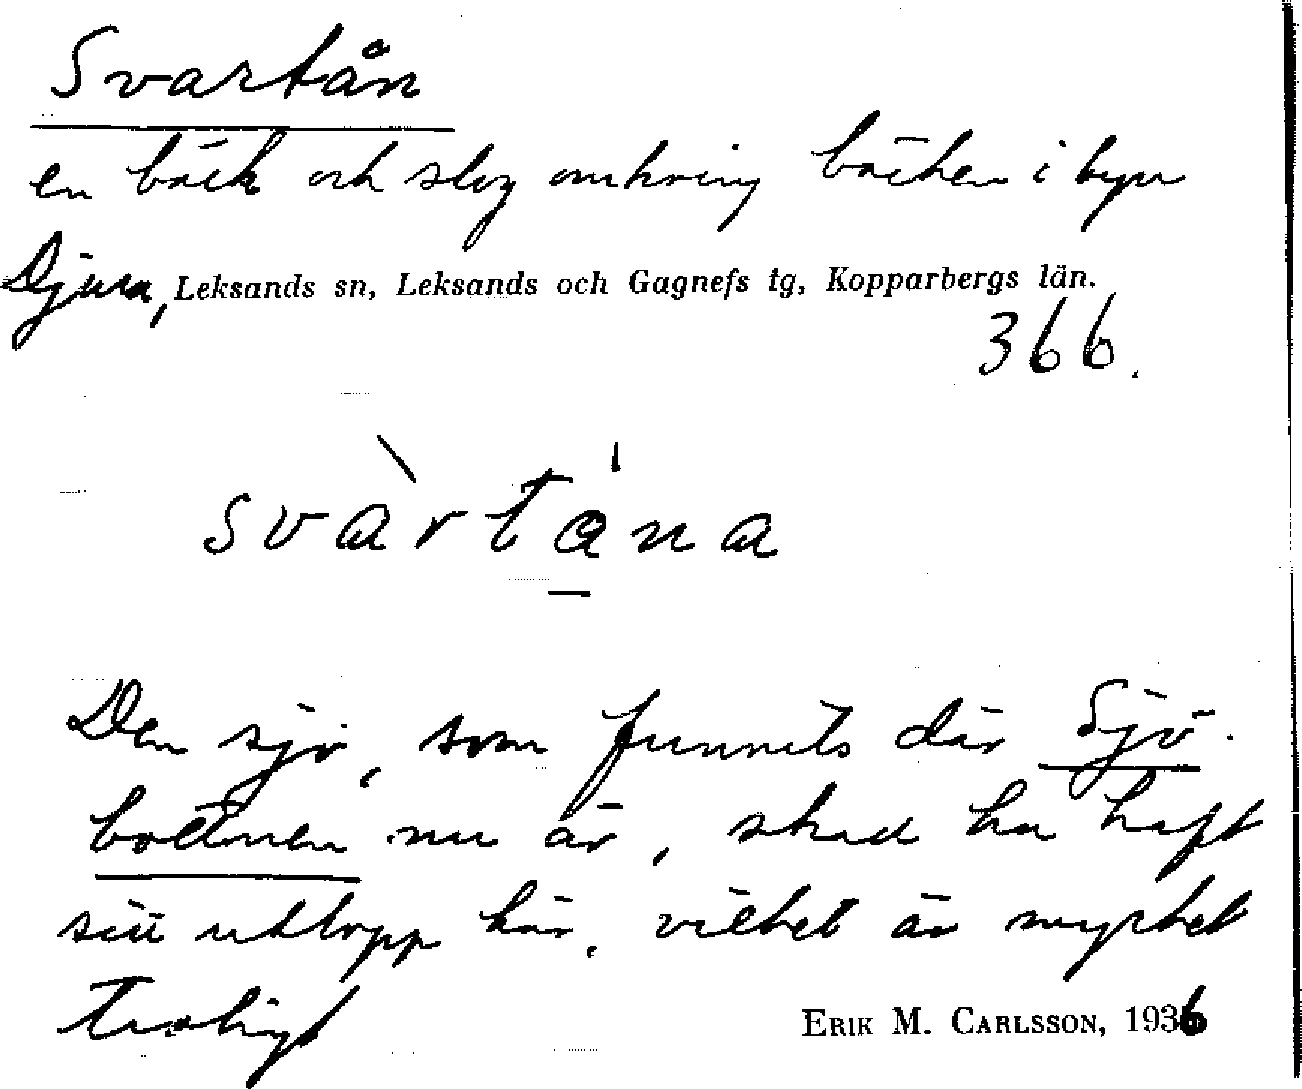 Svartån
en bäck och skog omkring bäcken i byn
Djura, Leksands sn, Leksands och Gagnefs tg, Kopparbergs län.
366.
svàrtána
Den sjö, som funnits där Sjö-
bottnen nu är, skall ha haft
sitt utlopp här, vilket är mycket
troligt
ERIK M. CARLSSON, 1936